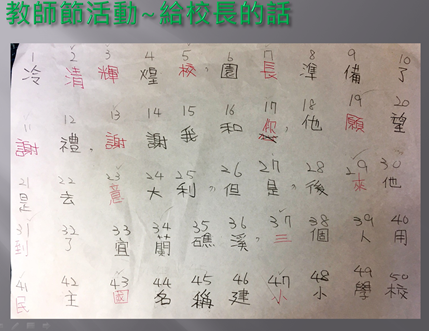 教師節活動~給校長的話
1 2 3 4 5 6 7 8 9 10
冷清輝煌校，園長準備了
11 12 13 14 15 16 17 18 19 20
謝禮，謝謝我和你，他願望
21 22 23 24 25 26 27 28 29 30
是去意大利，但是，後來他
31 32 33 34 35 36 37 38 39 40
到了宜蘭礁溪，三個人用
41 42 43 44 45 46 47 48 49 50
民主國名稱建小小學校